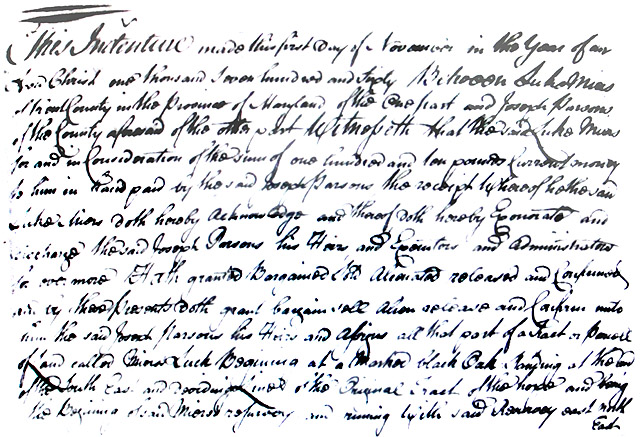 This Indenture made this first day of November in the Year of our
Lord Christ one thousand seven hundred and sixty Between Luke Miers
of Frost County in the Province of Maryland of the one part and Joseph Parsons
of the County aforesaid of the other part Witnesseth that the said Luke Miers
for and in Consideration of the sum of one hundred and ten pounds Current money
to him in hand paid by the said Joseph Parsons the receipt whereof he the said
Luke Miers doth hereby Acknowledge and thereof doth hereby Exonerate and
Discharge the said Joseph Parsons his Heirs and Executors and Administrators
for ever more Hath granted Bargained Sold Alienated released and Confirmed
and by these presents doth grant bargain sell Alien release and Confirm unto
him the said Joseph Parsons his Heirs and Assigns all that part of a Tract or Parcel
of Land called Miers Luck Beginning at a Marked black Oak Standing at the end
of the South East and lines of the Original Tract of the and being
the Beginning of said Miers and running with said east north
East